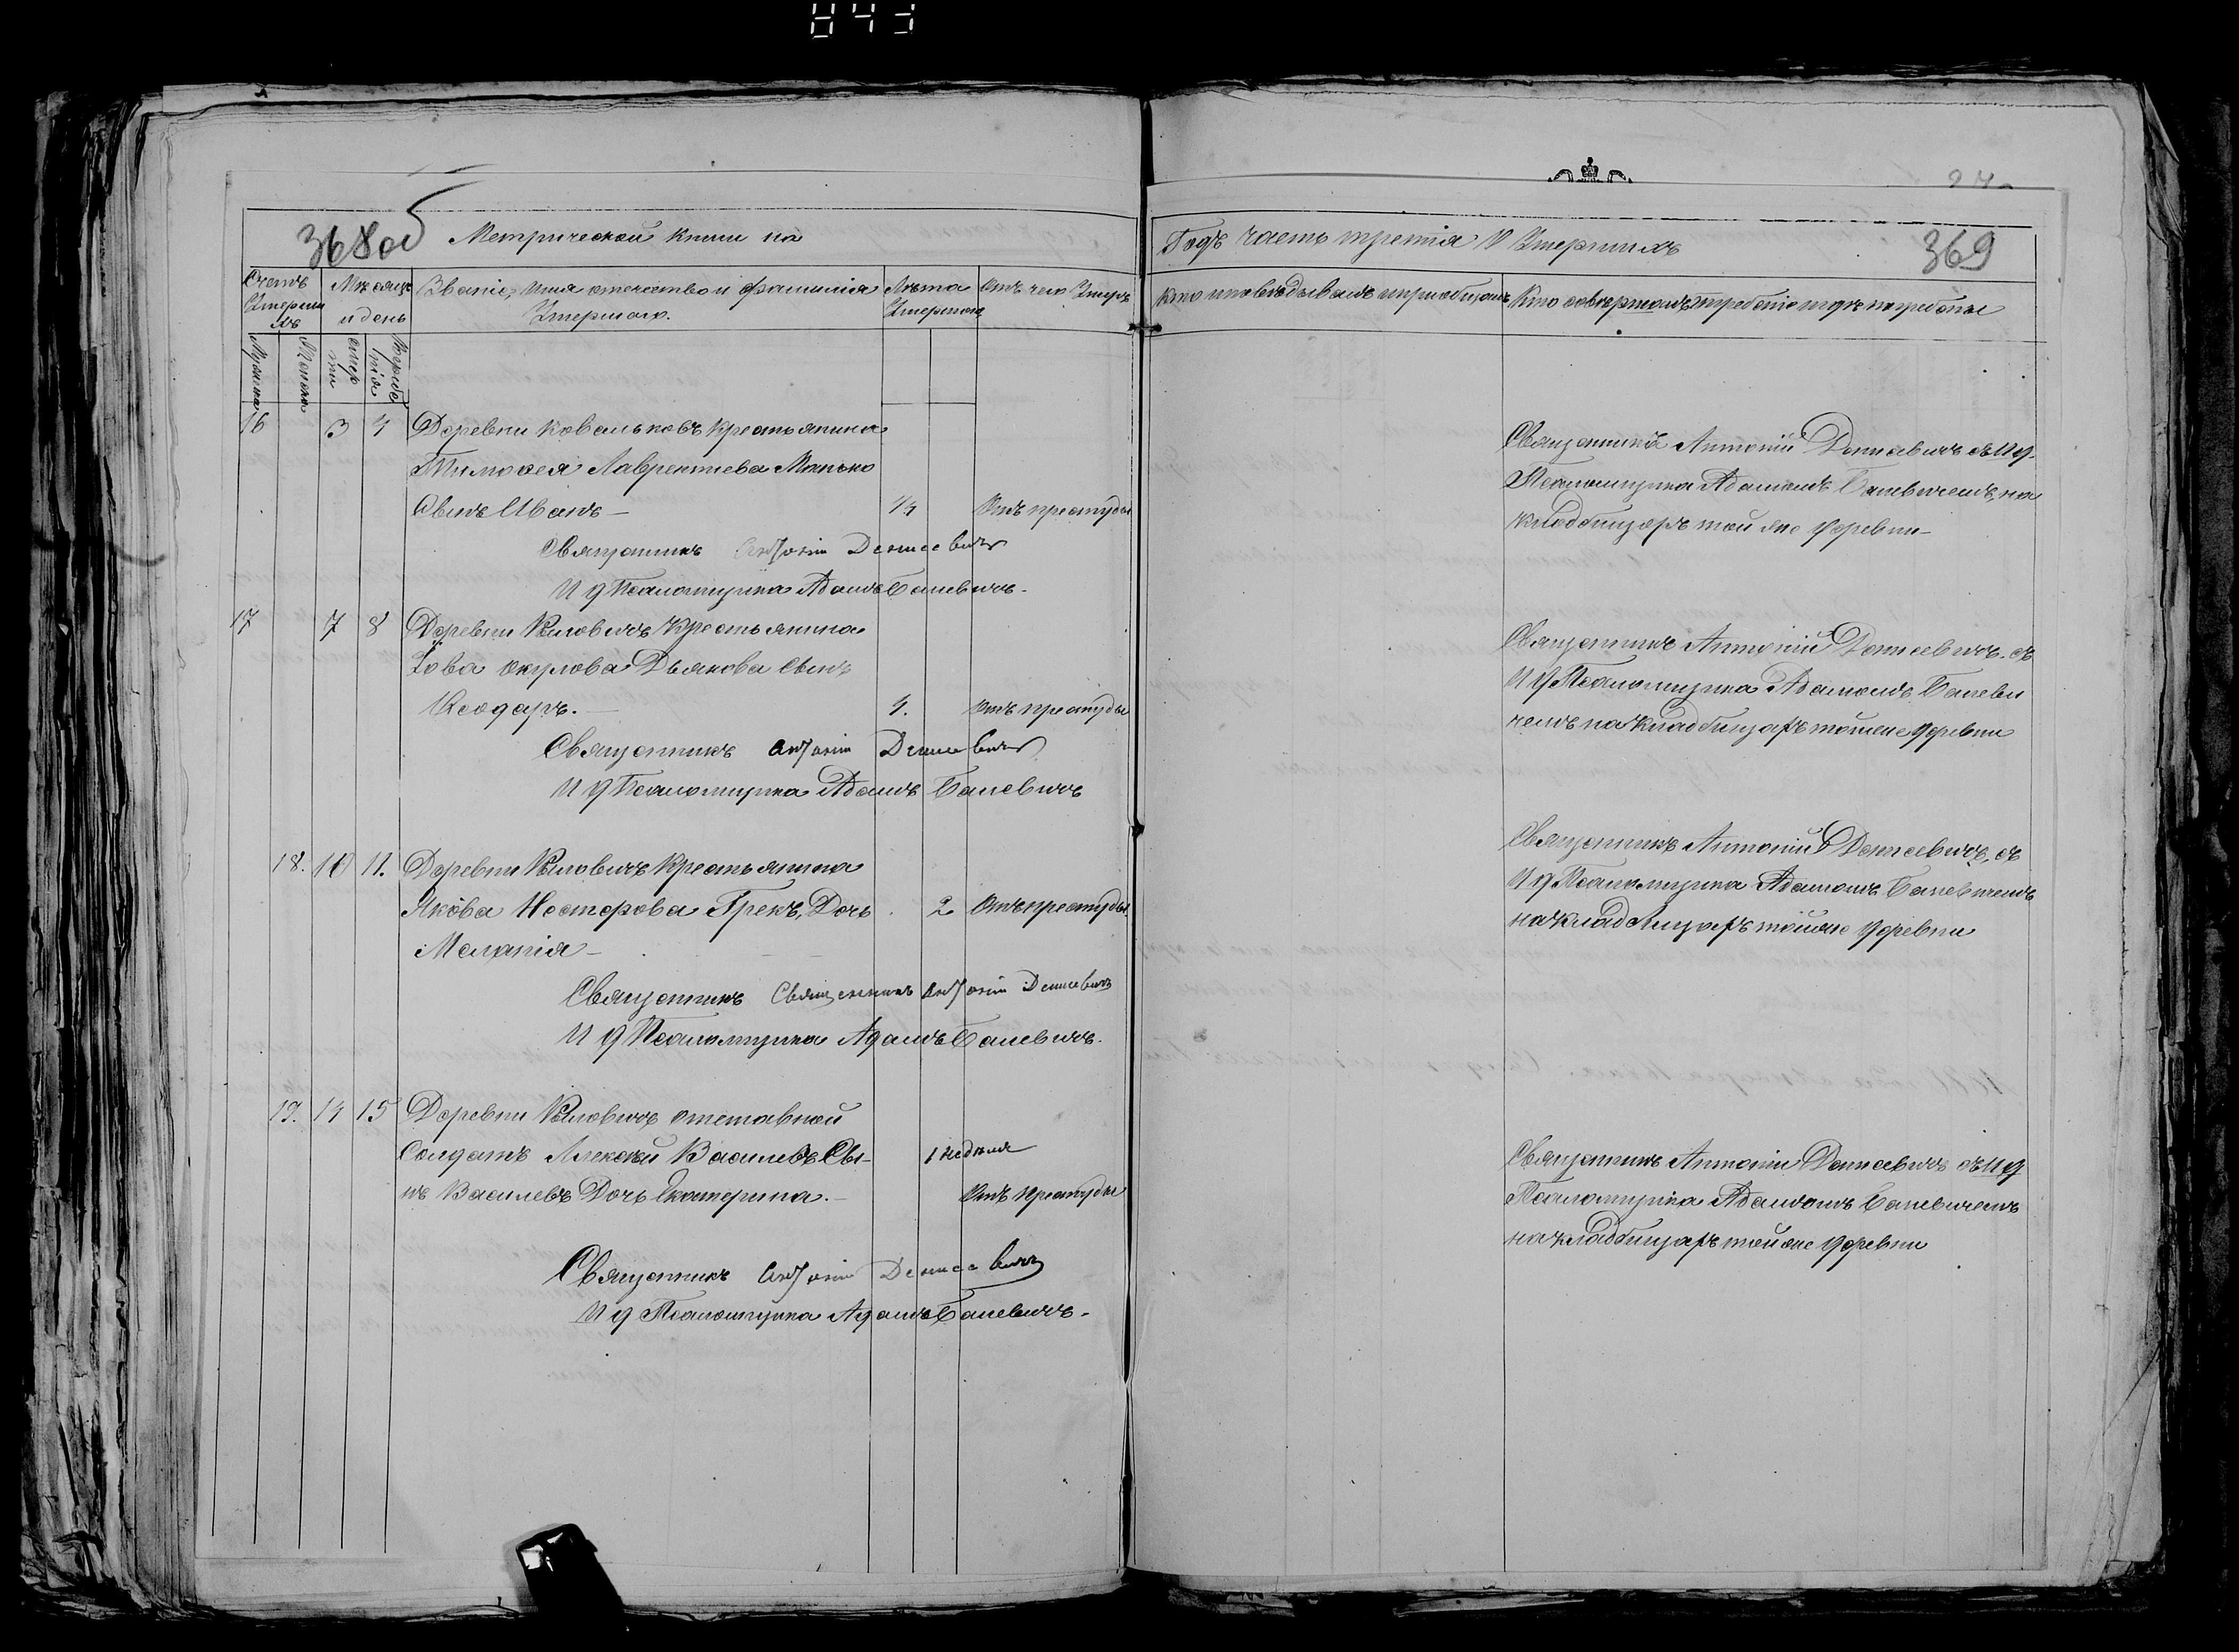 843
24
368об Метрической книги на
Годъ часть третія О Умершихъ 369
Счетъ Умершихъ
Мѣсяцъ и день
Званіе, имя отечество и фамилія Умершаго.
Лѣта Умершаго
Отъ чего Умеръ
Кто исповѣдывалъ и пріобщалъ
Кто совершалъ погребеніе и гдѣ погребены
Мужска
Женска
смерти
погребенія
16 3 4 Деревни Ковальковъ Крестьянина
Тимоѳея Лаврентиева Манько
Сынъ Иванъ — 14 Отъ простуды
Священникъ Антоній Денисевичъ
И д Псаломщика Адамъ Баневичъ.
Священникъ Антоній Денисевичъ съ И д.
Псаломщика Адамомъ Баневичемъ, на
кладбищѣ той же деревни —
17 7 8 Деревни Киловичъ Крестьянина
Іова Окулова Дьякова Сынъ
Ѳеодоръ. — 4. Отъ простуды
Священникъ Антоній Денисевичъ
И д Псаломщика Адамъ Баневичъ
Священникъ Антоній Денисевичъ. съ
И д Псаломщика Адамомъ Баневи
чемъ на кладбищѣ той же деревни
18. 10 11. Деревни Киловичъ Крестьянина
Якова Несторова Грекъ, Дочь 2 Отъ простуды
Меланія —
Священникъ Священникъ Антоній Денисевичъ
И д Псаломщика Адамъ Баневичъ.
Священникъ Антоній Денисевичъ, съ
И д Псаломщика Адамомъ Баневичемъ
на кладбищѣ той же деревни
19. 14 15 Деревни Киловичъ отставной
Солдатъ Алексѣй Василевъ Сы- 1 недѣля
нъ Василевъ Дочь Екатерина. — Отъ простуды
Священникъ Антоній Денисевичъ
И д Псаломщика Адамъ Баневичъ.
Священникъ Антоній Денисевичъ съ И д
Псаломщика Адамомъ Баневичемъ
на кладбищѣ той же деревни